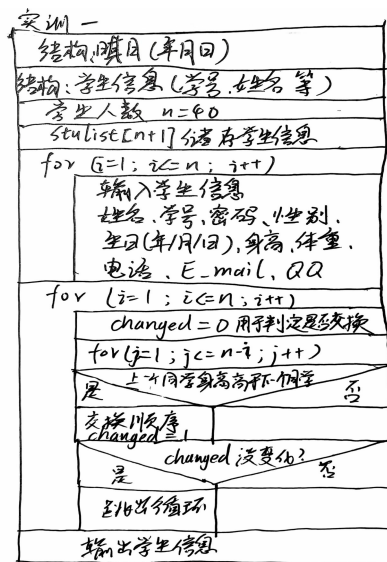 实训一
结构:日期(年月日)
结构:学生信息(学号、姓名等)
学生人数 n=40
stulist[n+1]储存学生信息
for (i=1; i<=n; i++)
输入学生信息
姓名、学号、密码、性别、
生日(年/月/日)、身高、体重、
电话、E_mail、QQ
for (i=1; i<=n; i++)
changed=0 用于判定是否交换
for(j=1; j<=n-i; j++)
上一个同学身高高于下一个同学
是 否
交换顺序
changed=1
changed 没变化?
是 否
跳出循环
输出学生信息